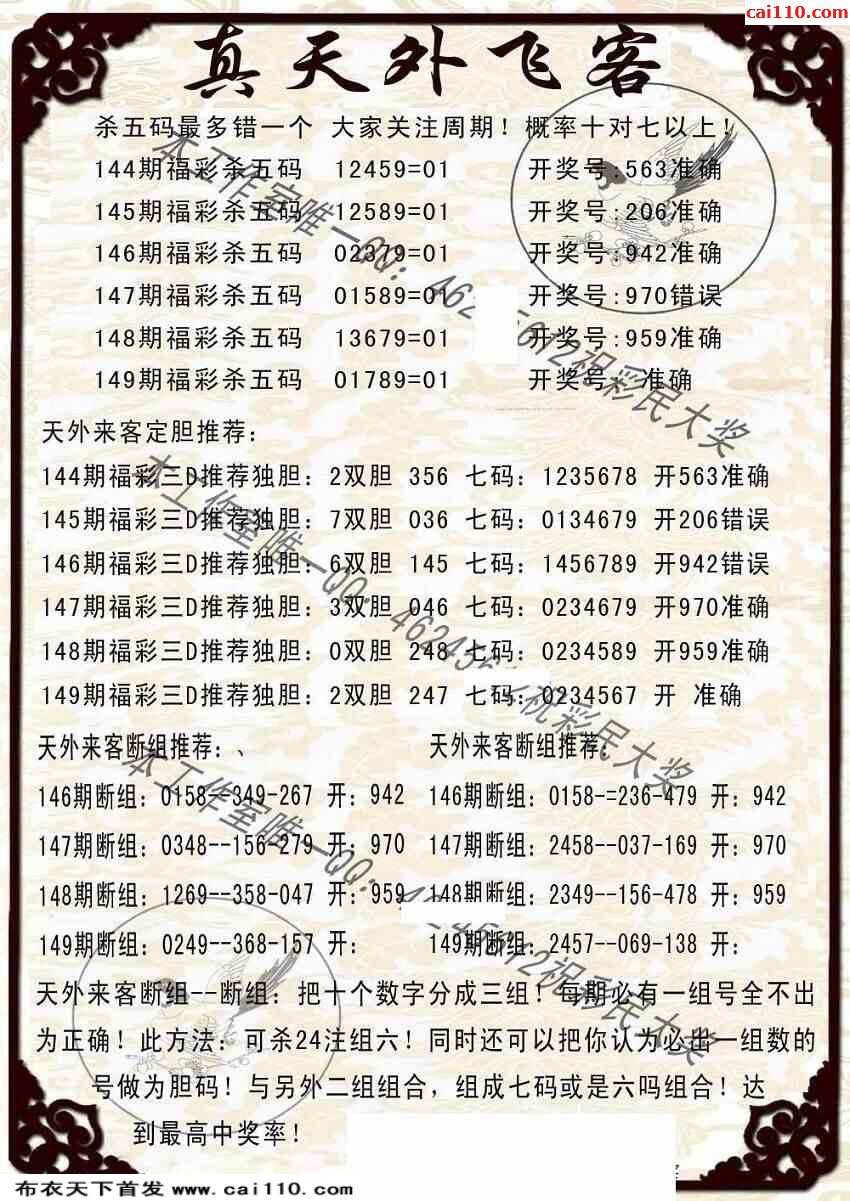 cai110.com
真天外飞客
杀五码最多错一个 大家关注周期！概率十对七以上！
144期福彩杀五码 12459=01 开奖号:563准确
145期福彩杀五码 12589=01 开奖号:206准确
146期福彩杀五码 02379=01 开奖号:942准确
147期福彩杀五码 01589=01 开奖号:970错误
148期福彩杀五码 13679=01 开奖号:959准确
149期福彩杀五码 01789=01 开奖号: 准确
天外来客定胆推荐：
144期福彩三D推荐独胆：2双胆 356 七码：1235678 开563准确
145期福彩三D推荐独胆：7双胆 036 七码：0134679 开206错误
146期福彩三D推荐独胆：6双胆 145 七码：1456789 开942错误
147期福彩三D推荐独胆：3双胆 046 七码：0234679 开970准确
148期福彩三D推荐独胆：0双胆 248 七码：0234589 开959准确
149期福彩三D推荐独胆：2双胆 247 七码：0234567 开 准确
天外来客断组推荐：、 天外来客断组推荐：
146期断组：0158--349-267 开：942 146期断组：0158-=236-479 开：942
147期断组：0348--156-279 开：970 147期断组：2458--037-169 开：970
148期断组：1269--358-047 开：959 148期断组：2349--156-478 开：959
149期断组：0249--368-157 开： 149期断组：2457--069-138 开：
天外来客断组--断组：把十个数字分成三组！每期必有一组号全不出
为正确！此方法：可杀24注组六！同时还可以把你认为必出一组数的
号做为胆码！与另外二组组合，组成七码或是六吗组合！达
到最高中奖率！
本工作室唯一QQ：祝彩民大奖
本工作室唯一QQ：祝彩民大奖
本工作室唯一QQ：祝彩民大奖
布衣天下首发 www.cai110.com